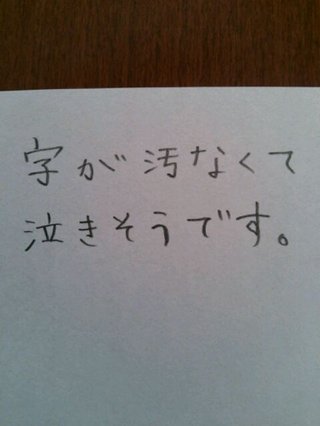 字が汚なくて
泣きそうです。